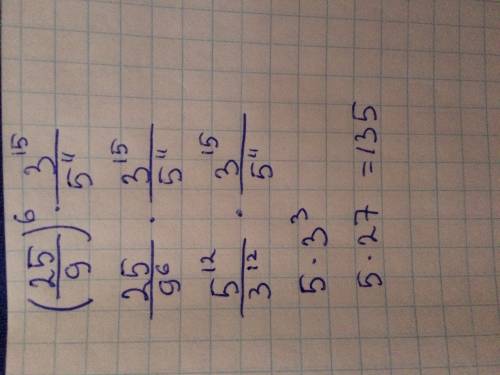 (25/9)^6 · 3^15/5^11
25/9^6 · 3^15/5^11
5^12/3^12 · 3^15/5^11
5 · 3^3
5 · 27 = 135